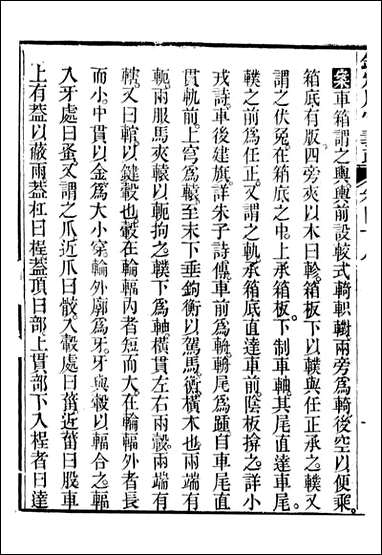 案車箱謂之輿輿前設較式輢軹轛兩旁爲輢後空以便乘
箱底有版四旁夾以木曰軫箱板下以轐與任正承之轐又
謂之伏兔在箱底之中上承箱板下制車軸其尾直達車尾
轐之前爲任正又謂之軓承箱底直達車前陰板揜之詳小
戎詩車後建旗詳朱子詩傳車前爲軏轐尾爲踵自車尾直
貫軓前上穹爲轅至末下垂鉤衡以駕馬衡橫木也兩端有
軛兩服馬夾轅以軛拘之轐下爲軸橫貫左右兩轂兩端有
轄又曰輨以鍵轂也轂在輪輻內者短而大在輪輻外者長
而小中貫以金爲大小穿輪外廓爲牙牙與轂以輻合之輻
入牙處曰蚤又謂之爪近爪曰骹入轂處曰菑近菑曰股車
上有蓋以蔽雨蓋杠曰桯蓋頂曰部上貫部下入桯者曰達